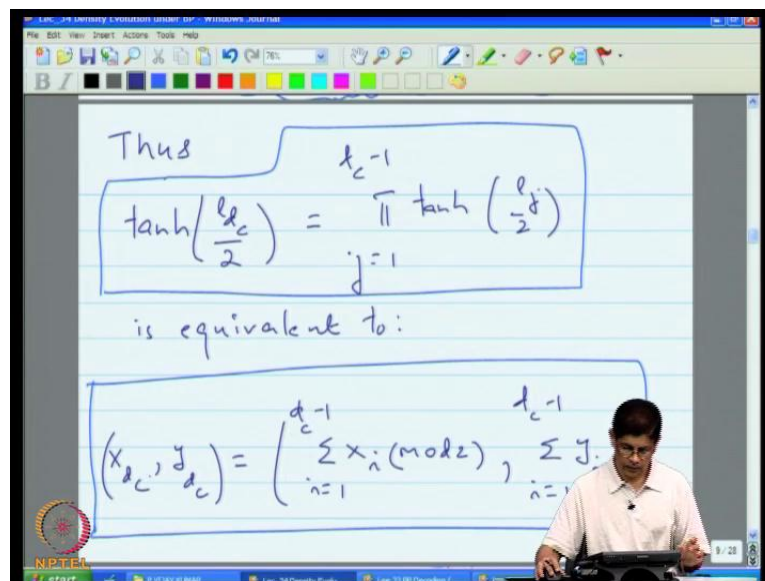 Lec_34 Density Evolution under BP - Windows Journal
File Edit View Insert Actions Tools Help
76%
B I
Thus
tanh(l_{d_c}/2) = π_{j=1}^{d_c-1} tanh(l_j/2)
is equivalent to:
(x_{d_c}, y_{d_c}) = (Σ_{i=1}^{d_c-1} x_i (mod 2), Σ_{i=1}^{d_c-1} y_i
9 / 28
NPTEL
start